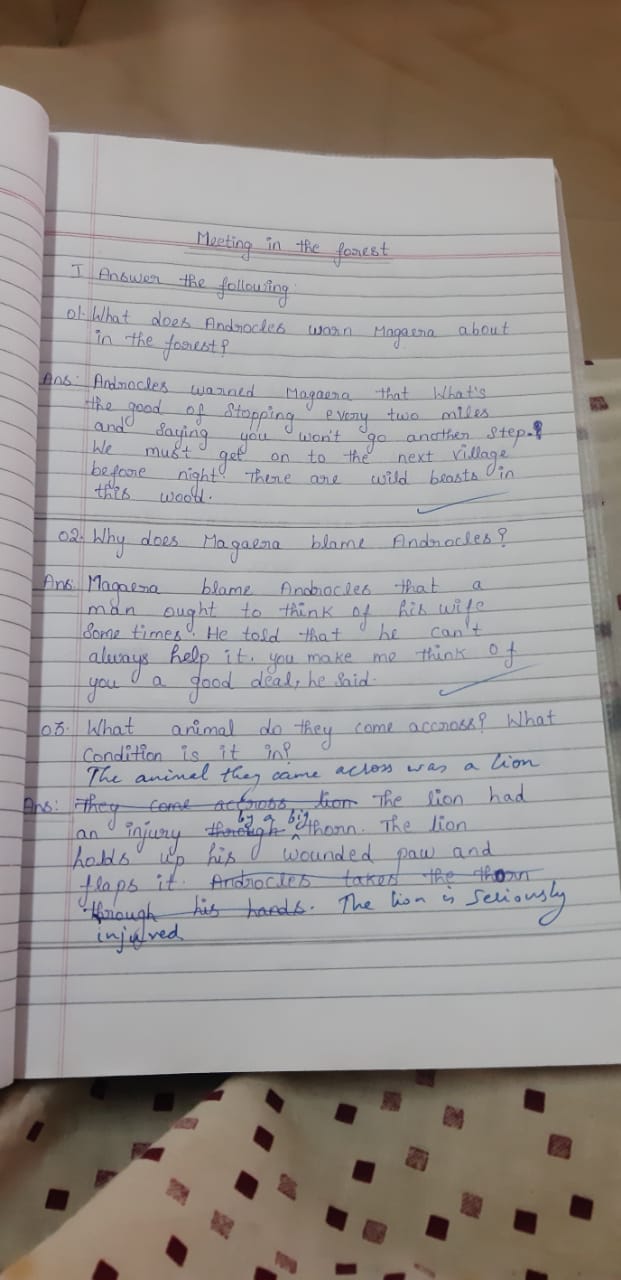 Meeting in the forest
I Answer the following
01. What does Androcles warn Magaera about
in the forest?
Ans: Androcles warned Magaera that What's
the good of Stopping every two miles
and Saying you won't go another step.
We must get on to the next village
before night. There are wild beasts in
this wood.
02. Why does Magaera blame Androcles?
Ans: Magaera blame Androcles that a
man ought to think of his wife
Some times. He told that he can't
always help it. you make me think of
you a good deal, he said.
03. What animal do they come accross? What
Condition is it in?
The animal they came across was a lion
Ans: They come actross lion The lion had
by a big
an injury through thorn. The lion
holds up his wounded paw and
flaps it. Androcles takes the thorn
through his hands. The lion is Seriously
injured